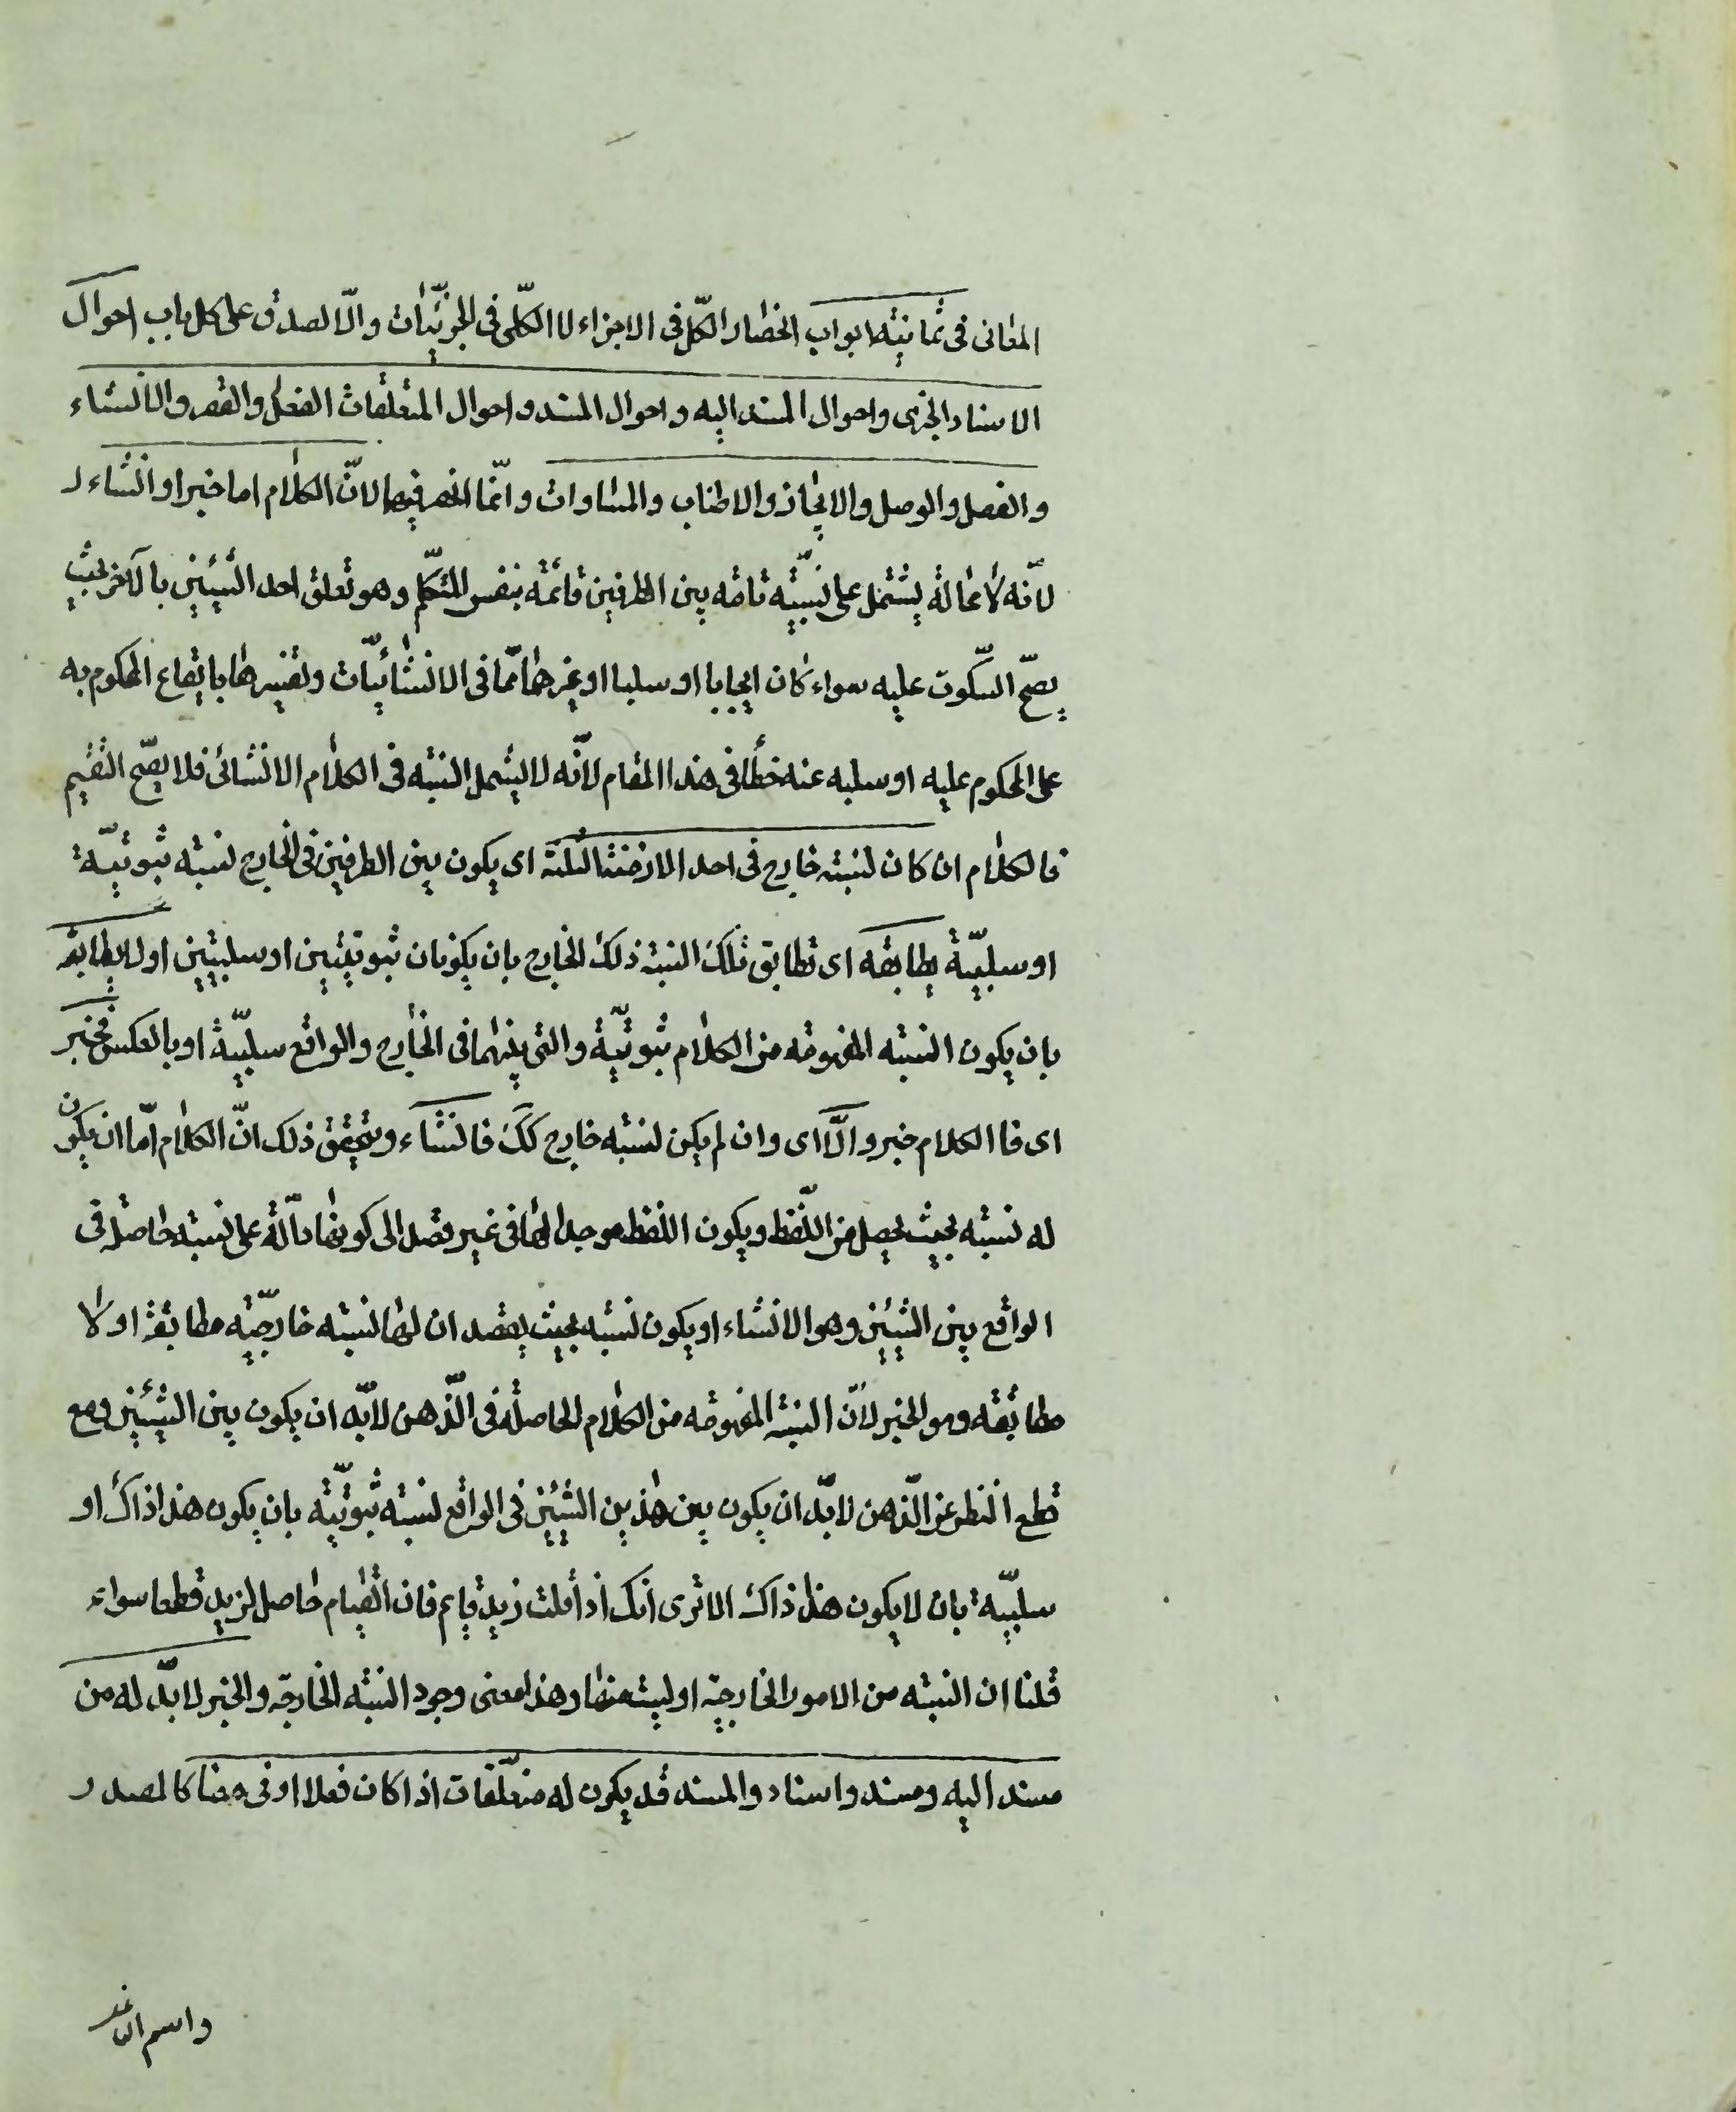 المعانى فى ثمانية ابواب انحصار الكلّ فى الاجزاء لا الكلّى فى الجزئيّات والّا لصدق على كل باب احوال
الاسناد الخبرى واحوال المسند اليه واحوال المسند واحوال المتعلّقات الفعل والقصر والانشاء
والفصل والوصل والايجاز والاطناب والمساوات وانّما انحصر فيها لانّ الكلام اما خبر او انشاء لـ
لانّه لا محالة يشتمل على نسبة تامّه بين الطرفين قائمة بنفس المتكلّم وهو تعلق احد الشيئين بالآخر بحيث
يصحّ السّكوت عليه سواء كان ايجابا او سلبا او غيرهما ممّا فى الانشائيّات وتفسيرها بايقاع المحكوم به
على المحكوم عليه او سلبه عنه خطأ فى هذا المقام لانّه لا يشمل النسبة فى الكلام الانشائى فلا يصحّ التقسيم
فالكلام ان كان لنسبته خارج فى احد الازمنة الثلثة اى يكون بين الطرفين فى الخارج نسبة ثبوتيّة
او سلبيّة يطابقه اى تطابق تلك النسبة ذلك الخارج بان يكونان ثبوتيّين او سلبيّين او لا يطابقه
بان يكون النسبة المفهومة من الكلام ثبوتيّة والتى بينهما فى الخارج والواقع سلبيّة او بالعكس فخبر
اى فا الكلام خبر والّا اى وان لم يكن لنسبته خارج كك فانشاء وتحقيق ذلك انّ الكلام امّا ان يكون
له نسبة بحيث يحصل من اللّفظ ويكون اللفظ موجدا لها فى غير قصد الى كونها دالّة على نسبة حاصلة فى
الواقع بين الشيئين وهو الانشاء او يكون نسبة بحيث يقصد ان لها نسبة خارجيّة مطابقة او لا
مطابقه وهو الخبر لانّ النسبة المفهومة من الكلام الحاصلة فى الذّهن لا بدّ ان يكون بين الشيئين ومع
قطع النظر عن الذّهن لا بدّ ان يكون بين هذين الشيئين فى الواقع نسبة ثبوتيّة بان يكون هذا ذاك او
سلبيّة بان لا يكون هذا ذاك الا ترى انك اذا قلت زيد قايم فان القيام حاصل لزيد قطعا سواء
قلنا ان النسبة من الامور الخارجيّة او ليست منها وهذا معنى وجود النسبة الخارجيّة والخبر لا بدّ له من
مسند اليه ومسند واسناد والمسند قد يكون له متعلّقات اذا كان فعلا او فى معناه كالمصدر
واسم الفاعل